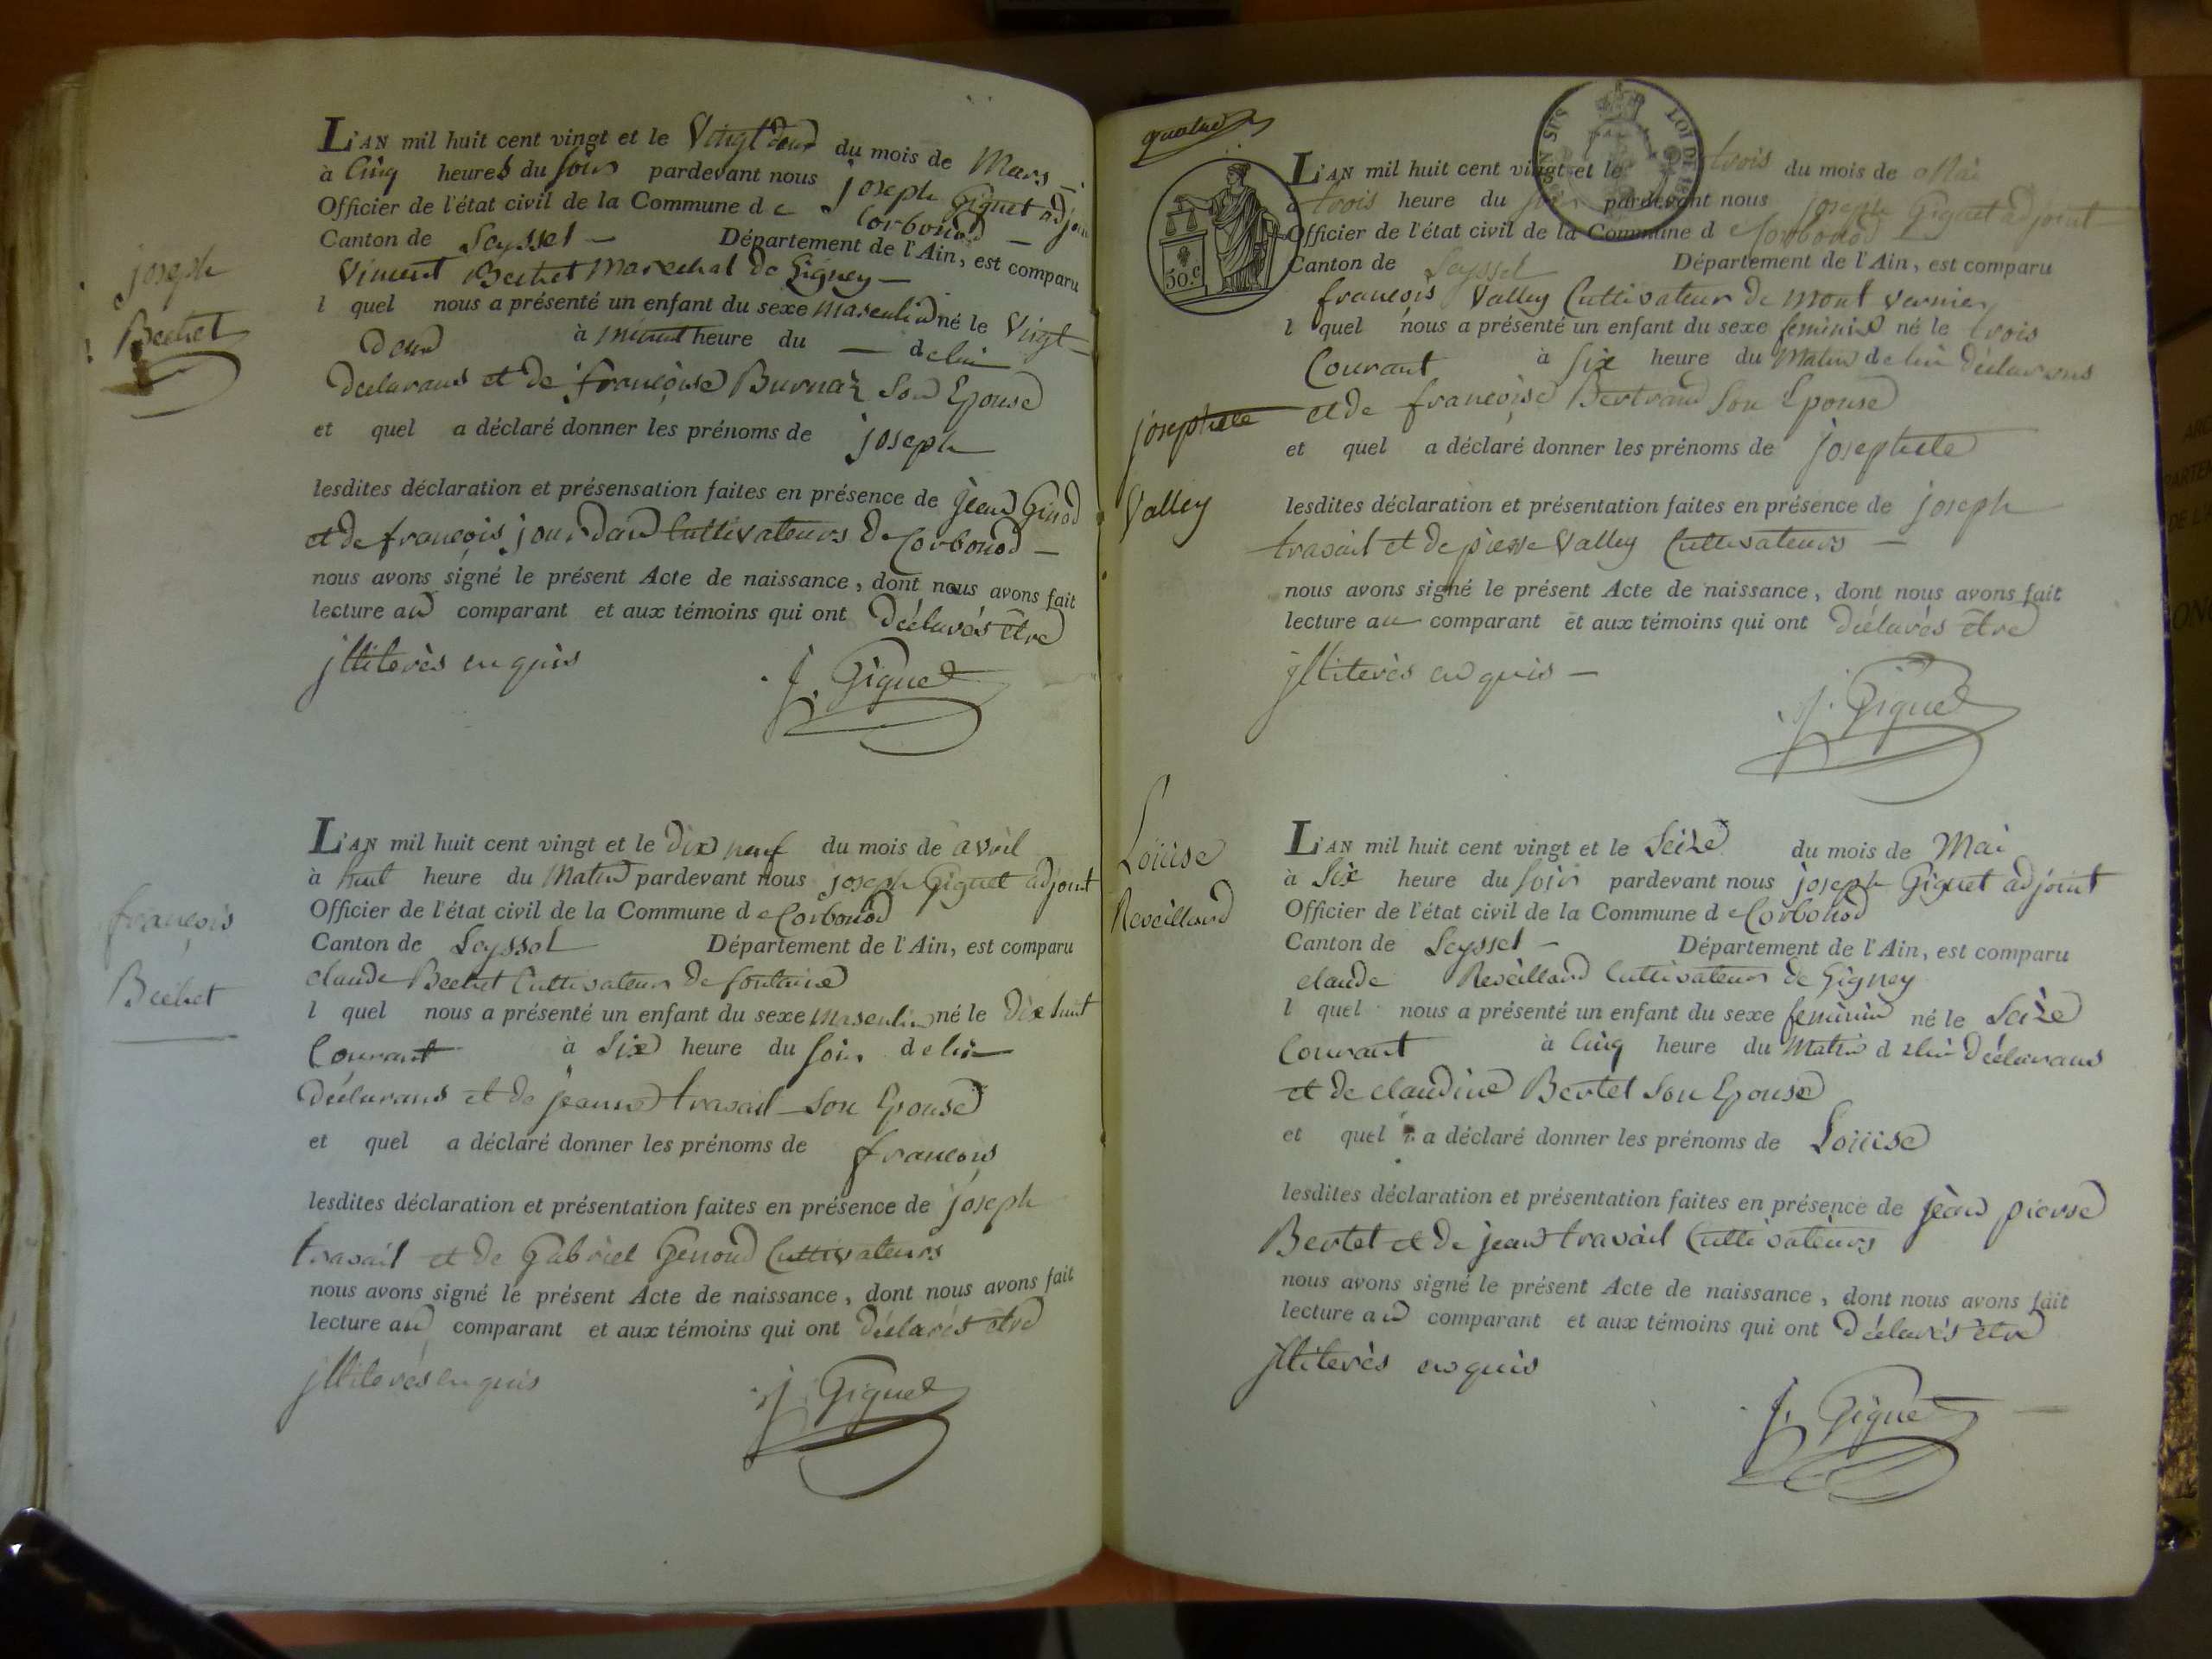 joseph
Bechet
L'AN mil huit cent vingt et le Vingt deux du mois de Mars
à Cinq heures du soir pardevant nous joseph Giguet adjoint
Officier de l'état civil de la Commune de Corbonod
Canton de Seyssel Département de l'Ain, est comparu
Vincent Bechet Marechal de Gigney
l quel nous a présenté un enfant du sexe Masculin né le Vingt
deux à Minuit heure du — de lui
déclarans et de françoise Burnaz Son Epouse
et quel a déclaré donner les prénoms de joseph
lesdites déclaration et présensation faites en présence de jean Ginod
et de françois jourdan Cultivateurs de Corbonod
nous avons signé le présent Acte de naissance, dont nous avons fait
lecture au comparant et aux témoins qui ont déclarés être
jlliterès enquis
J. Giguet
françois
Bechet
L'AN mil huit cent vingt et le dix neuf du mois de avril
à huit heure du Matin pardevant nous joseph Giguet adjoint
Officier de l'état civil de la Commune de Corbonod
Canton de Seyssel Département de l'Ain, est comparu
claude Bechet Cultivateur de fontaine
l quel nous a présenté un enfant du sexe Masculin né le dix huit
Courant à Six heure du soir de lui
déclarans et de jeanne travail son Epouse
et quel a déclaré donner les prénoms de françois
lesdites déclaration et présentation faites en présence de joseph
travail et de Gabriel Genoud Cultivateurs
nous avons signé le présent Acte de naissance, dont nous avons fait
lecture au comparant et aux témoins qui ont déclarés être
jlliterés enquis
J. Giguet
quatre
50.c
LOI DE
josephete
Valley
L'AN mil huit cent vingt et le trois du mois de Mai
à trois heure du soir pardevant nous joseph Giguet adjoint
Officier de l'état civil de la Commune de Corbonod
Canton de Seyssel Département de l'Ain, est comparu
françois Valley Cultivateur de Mont vernier
l quel nous a présenté un enfant du sexe feminin né le trois
Courant à six heure du Matin de lui déclarans
et de françoise Bertrand Son Epouse
et quel a déclaré donner les prénoms de josephete
lesdites déclaration et présentation faites en présence de joseph
travail et de pierre Valley Cultivateurs
nous avons signé le présent Acte de naissance, dont nous avons fait
lecture au comparant et aux témoins qui ont déclarés être
jlliterès enquis
J. Giguet
Loüise
Reveilland
L'AN mil huit cent vingt et le Seize du mois de Mai
à Six heure du soir pardevant nous joseph Giguet adjoint
Officier de l'état civil de la Commune de Corbonod
Canton de Seyssel Département de l'Ain, est comparu
claude Reveilland Cultivateur de Gigney
l quel nous a présenté un enfant du sexe feminin né le Seize
Courant à Cinq heure du Matin de lui déclarans
et de claudine Bertet Son Epouse
et quel a déclaré donner les prénoms de Loüise
lesdites déclaration et présentation faites en présence de jean pierre
Bertet et de jean travail Cultivateurs
nous avons signé le présent Acte de naissance, dont nous avons fait
lecture au comparant et aux témoins qui ont déclarés être
jlliterès enquis
J. Giguet